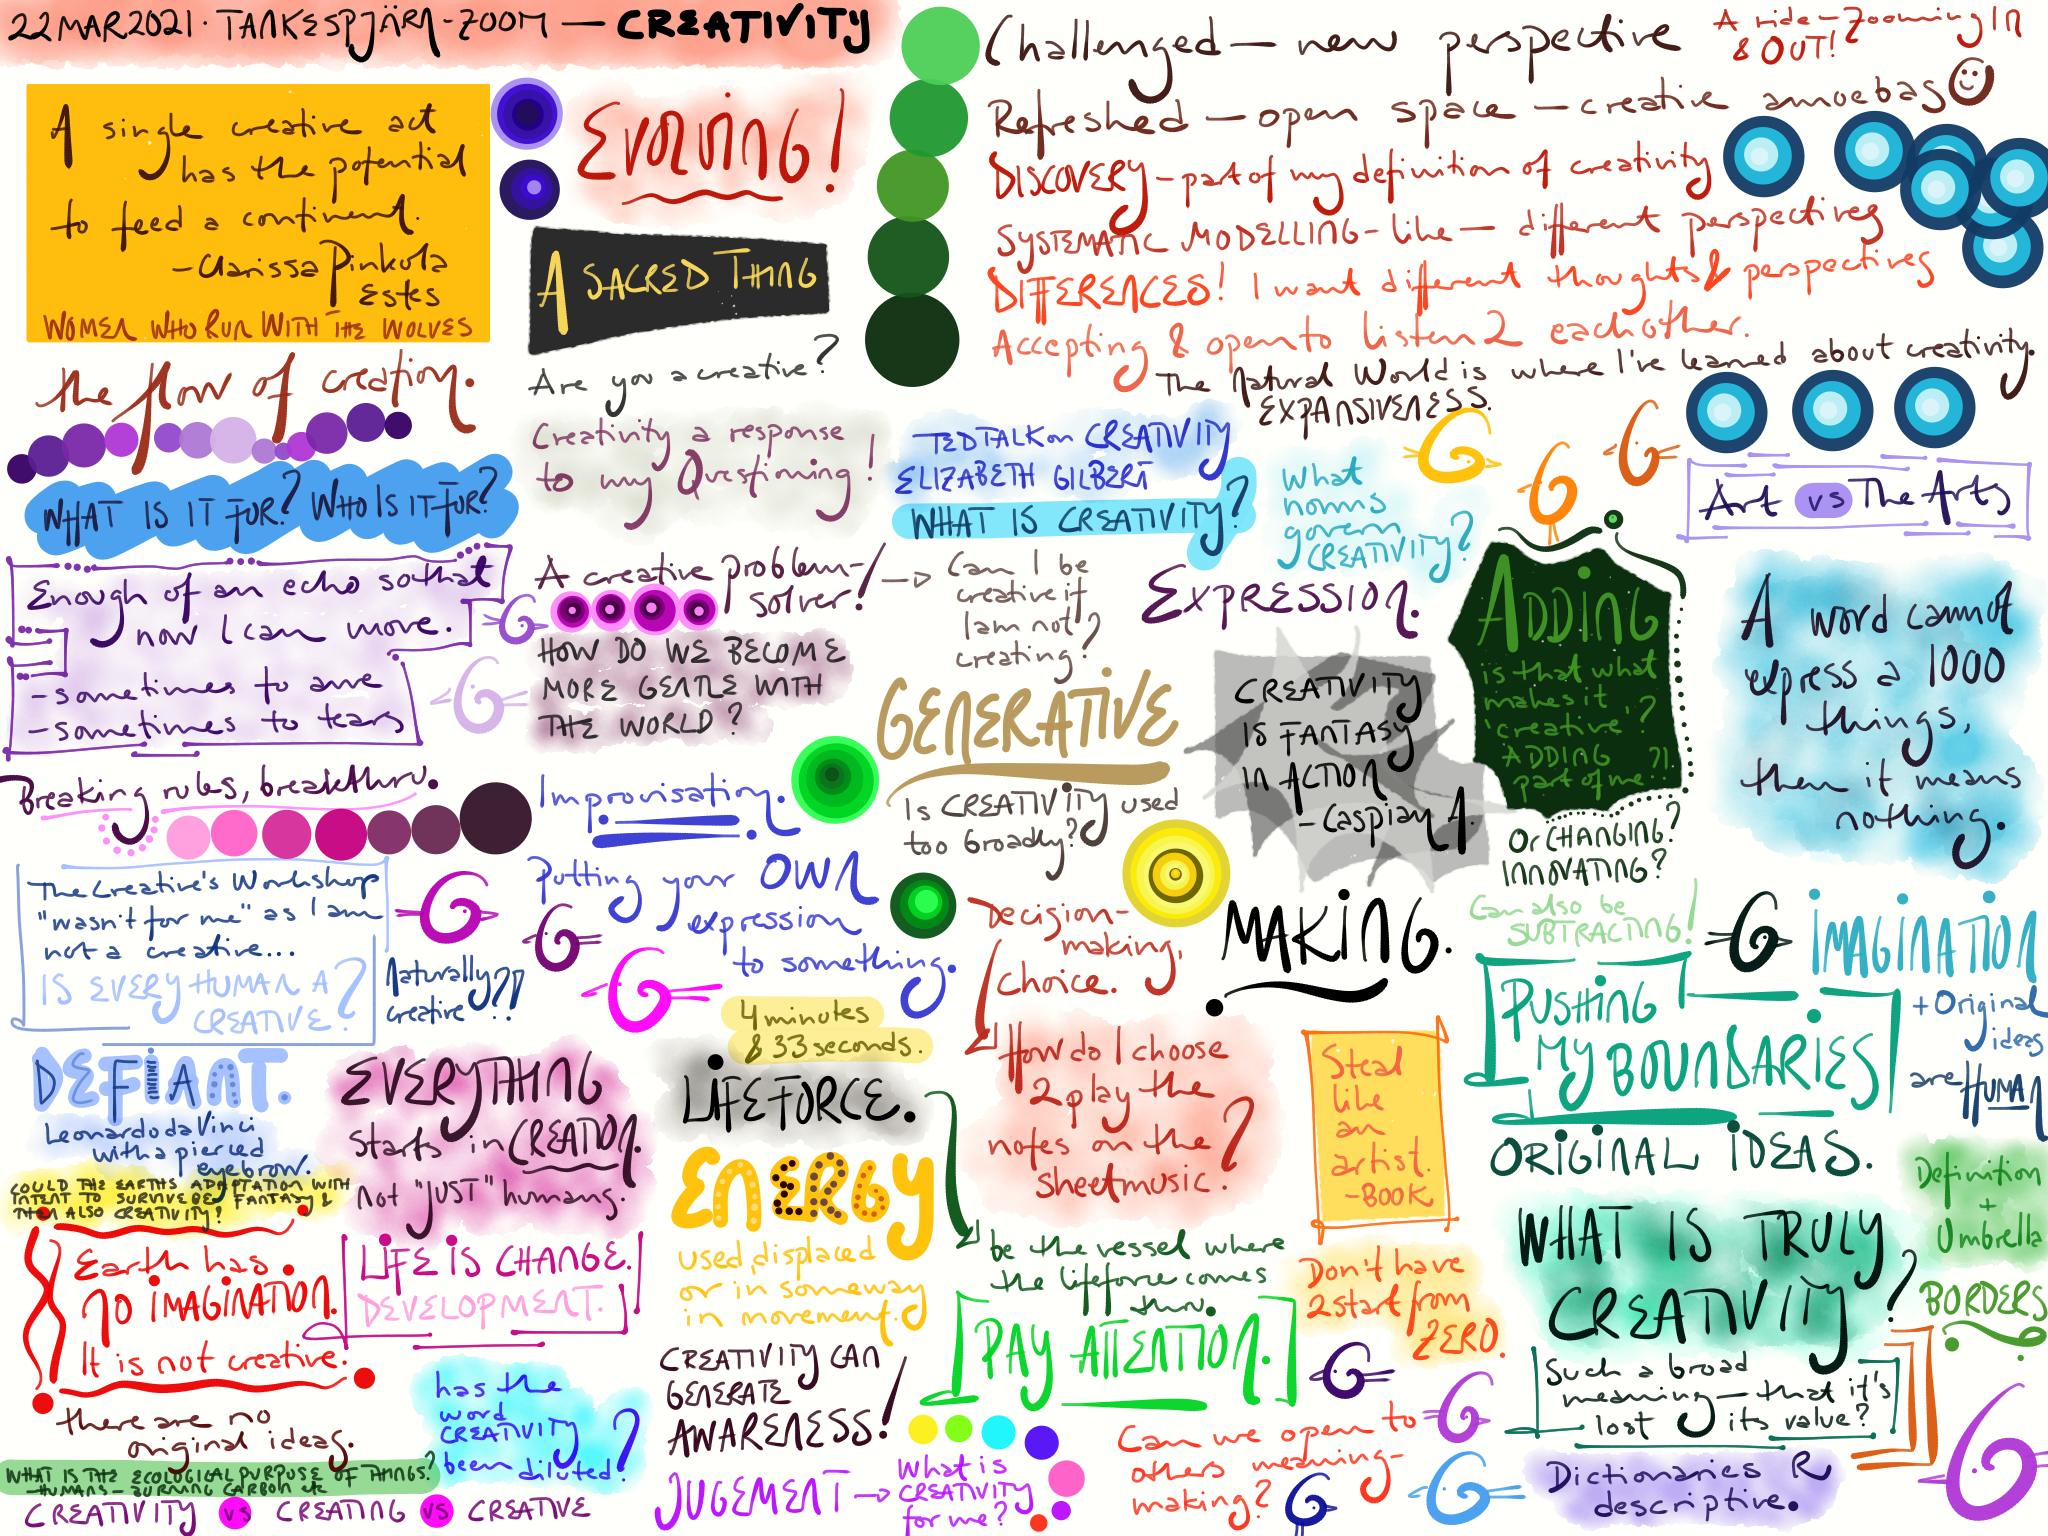 22 MAR 2021 · TANKESPJÄRN-ZOOM — CREATIVITY
A single creative act
has the potential
to feed a continent.
- Clarissa Pinkola
Estes
WOMEN WHO RUN WITH THE WOLVES
EVOLVING!
A SACRED THING
Are you a creative?
Challenged — new perspective
A ride - Zooming IN
& OUT!
Refreshed — open space — creative amoebas
DISCOVERY - part of my definition of creativity
SYSTEMATIC MODELLING - like — different perspectives
DIFFERENCES! I want different thoughts & perspectives
Accepting & open to listen 2 each other.
The Natural World is where I've learned about creativity.
EXPANSIVENESS.
the flow of creation.
WHAT IS IT FOR? WHO IS IT FOR?
Creativity a response
to my Questioning!
TED TALK on CREATIVITY
ELIZABETH GILBERT
WHAT IS CREATIVITY?
What
norms
govern
CREATIVITY?
Art vs The Arts
Enough of an echo so that
now I can move.
- sometimes to awe
- sometimes to tears
A creative problem-
solver!
HOW DO WE BECOME
MORE GENTLE WITH
THE WORLD?
Can I be
creative if
I am not
creating?
EXPRESSION.
GENERATIVE
Is CREATIVITY used
too broadly?
CREATIVITY
IS FANTASY
IN ACTION
- Caspian A.
ADDING
is that what
makes it
'creative'?
ADDING
part of me ?!
Or CHANGING?
INNOVATING?
Can also be
SUBTRACTING!
A word cannot
express a 1000
things,
then it means
nothing.
Breaking rules, breakthru.
Improvisation.
The Creative's Workshop
"wasn't for me" as I am
not a creative...
IS EVERY HUMAN A
CREATIVE?
Naturally
creative?!
Putting your OWN
expression
to something.
4 minutes
& 33 seconds.
Decision-
making,
choice.
MAKING.
IMAGINATION
+ Original
ideas
are HUMAN
PUSHING
MY BOUNDARIES
ORIGINAL IDEAS.
DEFIANT.
Leonardo da Vinci
with a pierced
eyebrow.
COULD THE EARTHS ADAPTATION WITH
INTENT TO SURVIVE BE FANTASY &
THEN ALSO CREATIVITY!
EVERYTHING
starts in CREATION.
not "JUST" humans.
LIFEFORCE.
ENERGY
used, displaced
or in someway
in movement.
How do I choose
2 play the
notes on the
sheetmusic?
Steal
like
an
artist.
- BOOK
be the vessel where
the lifeforce comes
thru.
PAY ATTENTION.
Don't have
2 start from
ZERO.
WHAT IS TRULY
CREATIVITY?
Definition
+
Umbrella
BORDERS
Such a broad
meaning — that it's
lost its value?
Earth has
NO IMAGINATION.
It is not creative.
LIFE IS CHANGE.
DEVELOPMENT.
there are no
original ideas.
has the
word
CREATIVITY
been diluted?
CREATIVITY CAN
GENERATE
AWARENESS!
JUGEMENT
What is
CREATIVITY
for me?
Can we open to
others meaning-
making?
Dictionaries R
descriptive.
WHAT IS THE ECOLOGICAL PURPOSE OF THINGS?
- HUMANS - BURNING CARBON etc
CREATIVITY VS CREATING VS CREATIVE